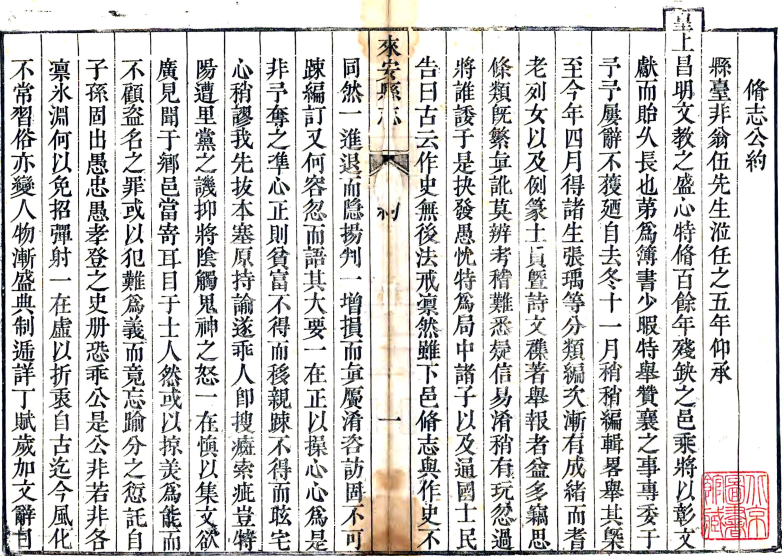 脩志公約
縣臺非翁伍先生涖任之五年仰承
皇上昌明文教之盛心特脩百餘年殘缺之邑乘將以彰文
獻而貽久長也第爲簿書少暇特舉贊襄之事專委于
予予屢辭不獲廼自去冬十一月稍稍編輯畧舉其槩
至今年四月得諸生張瑀等分類編次漸有成緒而耆
老列女以及例篆士員暨詩文襍著舉報者益多竊思
條類旣繁眞訛莫辨考稽難悉疑信易淆稍有玩忽過
將誰諉于是抉發愚忱特爲局中諸子以及通國士民
告曰古云作史無後法戒凛然雖下邑脩志與作史不
來安縣志
一
同然一進退而隱揚判一增損而眞贋淆咨訪固不可
踈編訂又何容忽而語其大要一在正以操心心爲是
非予奪之準心正則貧富不得而移親踈不得而眩宅
心稍謬我先抜本塞原持論遂乖人卽搜癥索疵豈特
陽遭里黨之譏抑將陰觸鬼神之怒一在愼以集文欲
廣見聞于鄉邑當寄耳目于士人然或以掠美爲能而
不顧盜名之罪或以犯難爲義而竟忘踰分之愆託自
子孫固出愚忠愚孝登之史册恐乖公是公非若非各
凛氷淵何以免招彈射一在虛以折衷自古迄今風化
不常習俗亦變人物漸盛典制遞詳丁賦歲加文辭日